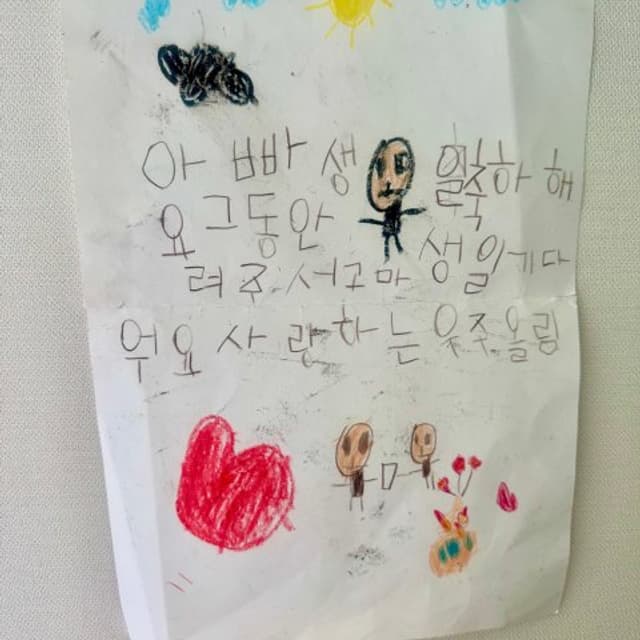 아빠 생일축하해
요 그동안 생일기다
려주서고마
워요 사랑하는 올림